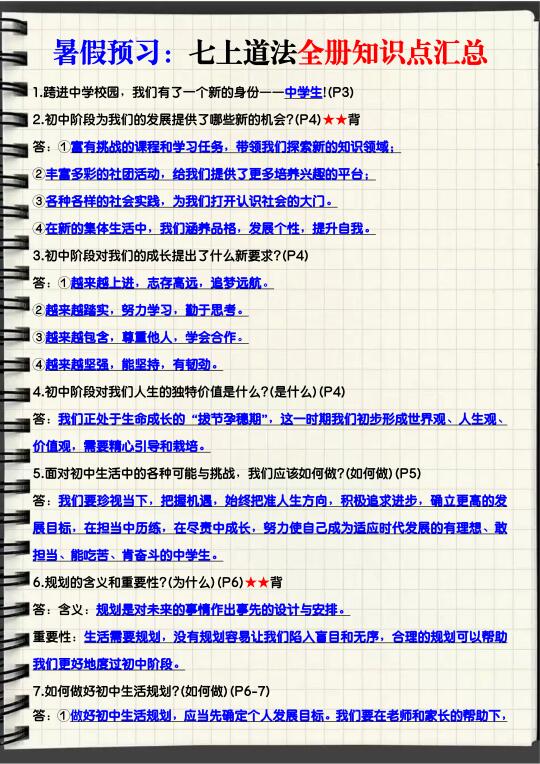 暑假预习：七上道法全册知识点汇总
1.跨进中学校园，我们有了一个新的身份——中学生!(P3)
2.初中阶段为我们的发展提供了哪些新的机会?(P4)★★背
答：①富有挑战的课程和学习任务，带领我们探索新的知识领域；
②丰富多彩的社团活动，给我们提供了更多培养兴趣的平台；
③各种各样的社会实践，为我们打开认识社会的大门。
④在新的集体生活中，我们涵养品格，发展个性，提升自我。
3.初中阶段对我们的成长提出了什么新要求?(P4)
答：①越来越上进，志存高远，追梦远航。
②越来越踏实，努力学习，勤于思考。
③越来越包含，尊重他人，学会合作。
④越来越坚强，能坚持，有韧劲。
4.初中阶段对我们人生的独特价值是什么?(是什么)(P4)
答：我们正处于生命成长的“拔节孕穗期”，这一时期我们初步形成世界观、人生观、
价值观，需要精心引导和栽培。
5.面对初中生活中的各种可能与挑战，我们应该如何做?(如何做)(P5)
答：我们要珍视当下，把握机遇，始终把准人生方向，积极追求进步，确立更高的发
展目标，在担当中历练，在尽责中成长，努力使自己成为适应时代发展的有理想、敢
担当、能吃苦、肯奋斗的中学生。
6.规划的含义和重要性?(为什么)(P6)★★背
答：含义：规划是对未来的事情作出事先的设计与安排。
重要性：生活需要规划，没有规划容易让我们陷入盲目和无序，合理的规划可以帮助
我们更好地度过初中阶段。
7.如何做好初中生活规划?(如何做)(P6-7)
答：①做好初中生活规划，应当先确定个人发展目标。我们要在老师和家长的帮助下，